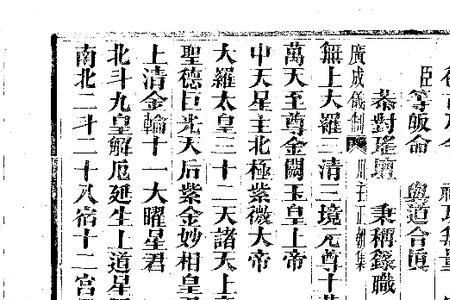 臣等皈命　與道合眞
恭對瑤壇　秉稱籙職
廣成儀制
集
無上大羅三清三境元尊十
萬天至尊金闕玉皇上帝
中天星主北極紫微大帝
大羅太皇三十二天諸天上
聖德巨光天后紫金妙相皇
上清金輪十一大曜星君
北斗九皇解厄延生上道星
南北二斗二十八宿十二宮